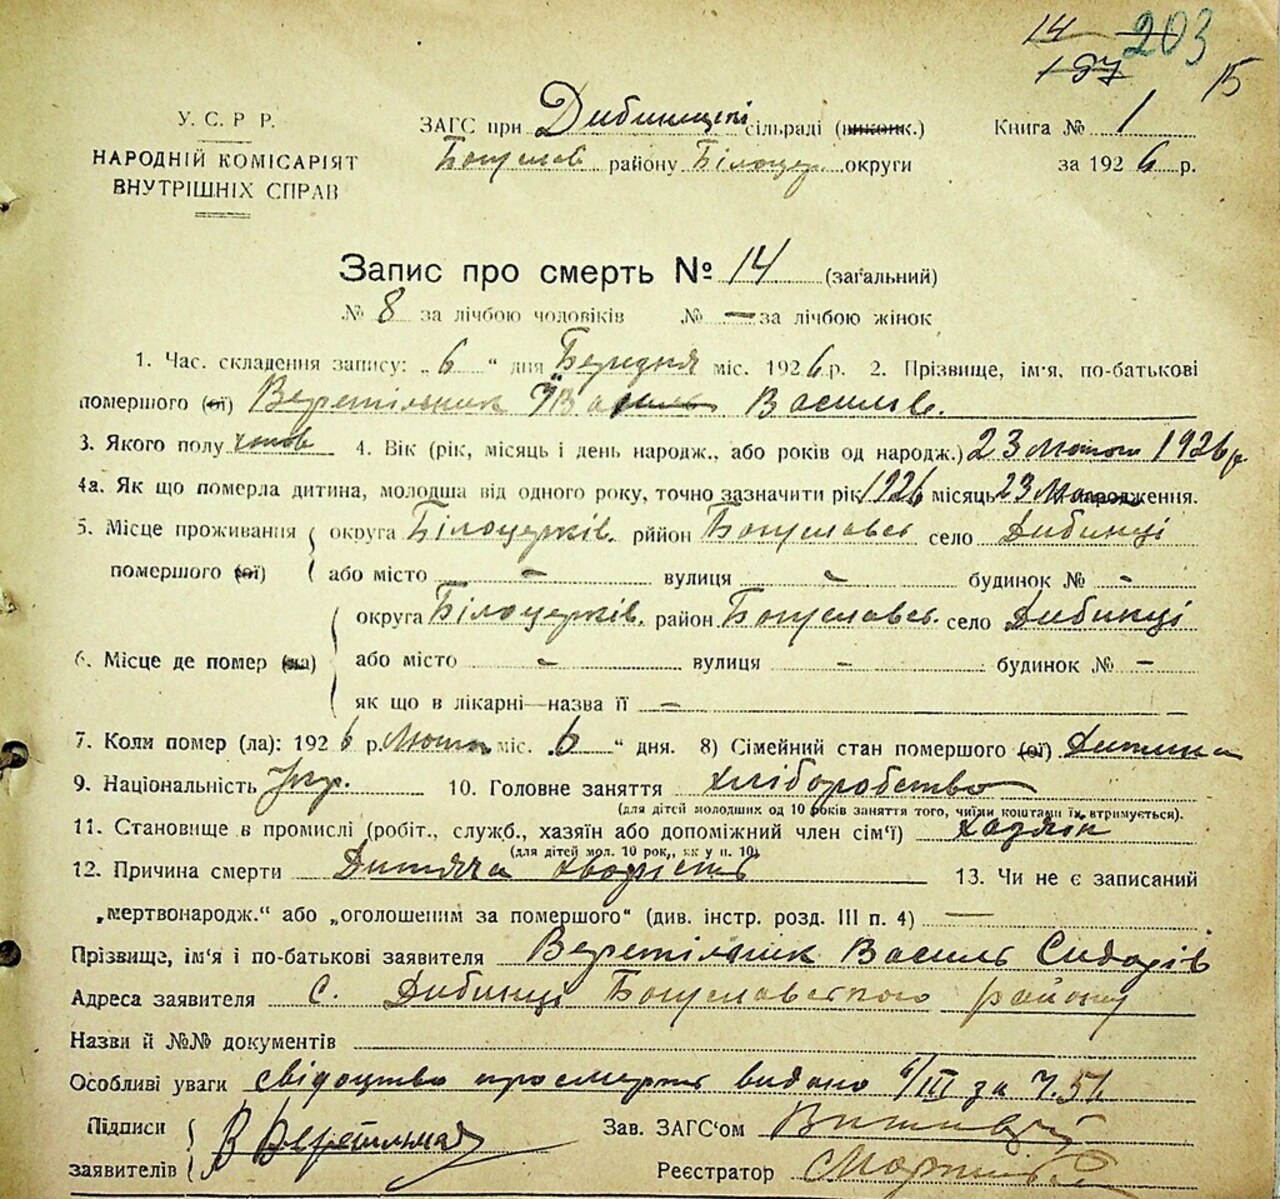 14 203
197 15
У. С. Р. Р.
НАРОДНІЙ КОМІСАРІЯТ
ВНУТРІШНІХ СПРАВ
ЗАГС при Дибинецькі сільраді (виконк.) Книга № 1
Богуслав району Білоцер. округи за 1926 р.
Запис про смерть № 14 (загальний)
№ 8 за лічбою чоловіків № — за лічбою жінок
1. Час. складення запису: „6“ дня Березня міс. 1926 р. 2. Прізвище, ім'я, по-батькові
помершого (ої) Веретільник Василів.
3. Якого полу чолов 4. Вік (рік, місяць і день народж., або років од народж.) 23 Лютого 1926 р.
4а. Як що померла дитина, молодша від одного року, точно зазначити рік 1926 місяць 23 народження.
5. Місце проживання округа Білоцерків. рййон Богуславсь село Дибинці
помершого (ої) або місто - вулиця - будинок № -
округа Білоцерків. район Богуславсь. село Дибинці
6. Місце де помер (ла) або місто - вулиця - будинок № -
як що в лікарні—назва її —
7. Коли помер (ла): 1926 р. міс. „6“ дня. 8) Сімейний стан помершого (ої) Дитина
9. Національність Укр. 10. Головне заняття хліборобство
(для дітей молодших од 10 років заняття того, чиїми коштами їх втримується).
11. Становище в промислі (робіт., служб., хазяїн або допоміжний член сім'ї) хазяїн
(для дітей мол. 10 рок., як у п. 10)
12. Причина смерти Дитяча хворість 13. Чи не є записаний
„мертвонародж.“ або „оголошеним за помершого“ (див. інстр. розд. III п. 4) —
Прізвище, ім'я і по-батькові заявителя Веретільник Василь Сидорів
Адреса заявителя С. Дибинці Богуславського району
Назви й №№ документів
Особливі уваги свідоцтво про смерть видано 6/III за ч. 51
Підписи
заявителів В Веретільник
Зав. ЗАГС'ом
Реєстратор